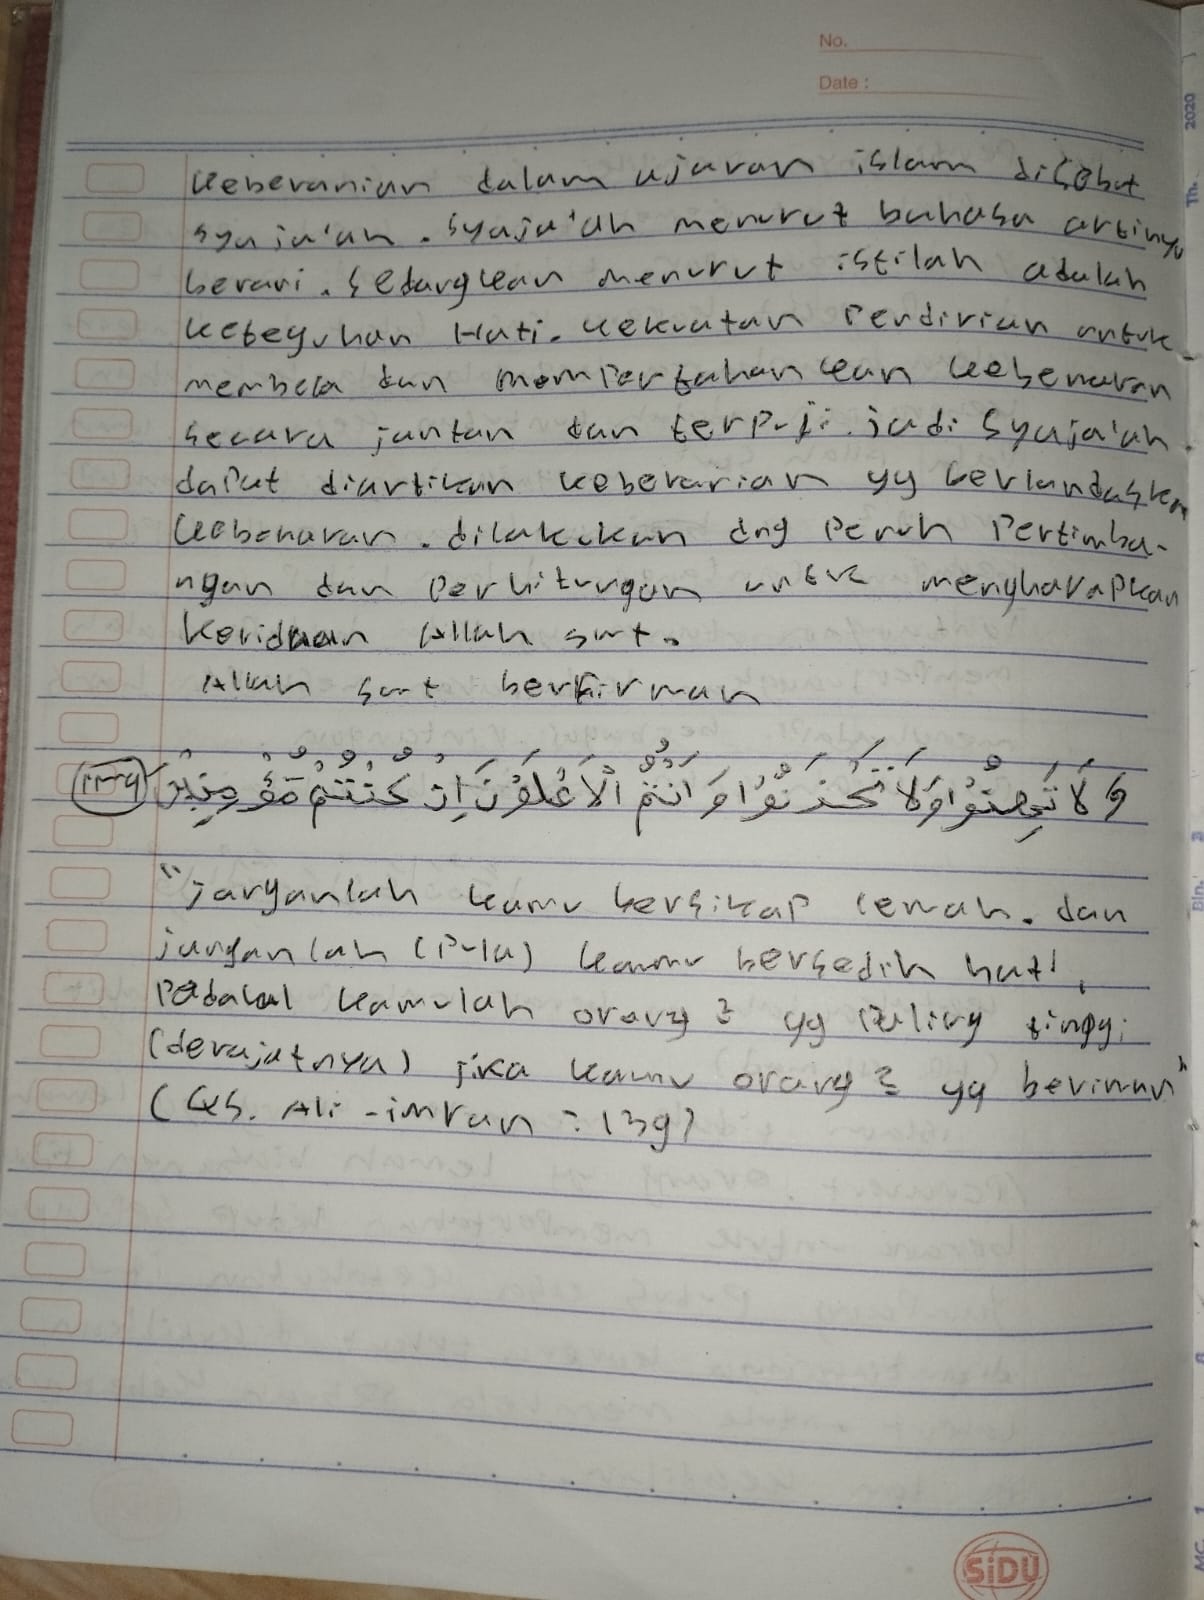 No.
Date :
Keberanian dalam ajaran islam disebut
syaja'ah. Syaja'ah menurut bahasa artinya
berani. Sedangkan menurut istilah adalah
keteguhan Hati. kekuatan Pendirian untuk
membela dan mempertahankan kebenaran
secara jantan dan terpuji. jadi Syaja'ah
dapat diartikan keberanian yg berlandaskan
kebenaran. dilakukan dng Penuh Pertimba-
ngan dan Perhitungan untuk mengharapkan
keridhaan Allah swt.
Allah swt berfirman
وَلَا تَهِنُوْا وَلَا تَحْزَنُوْا وَاَنْتُمُ الْاَعْلَوْنَ اِنْ كُنْتُمْ مُّؤْمِنِيْنَ ١٣٩
"janganlah kamu bersikap lemah. dan
janganlah (Pula) kamu bersedih hati,
Padahal kamulah orang2 yg Paling tinggi
(derajatnya) jika kamu orang2 yg beriman"
(QS. Ali-imran : 139)
SiDU
Th. 2020
Bln. 3
MC 1